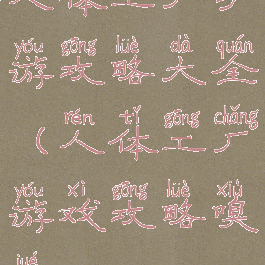 yóu gōng lüè dà quán
游攻略大全
rén tǐ gōng chǎng
（人体工厂
yóu xì gōng lüè xiù
游戏攻略嗅
jué